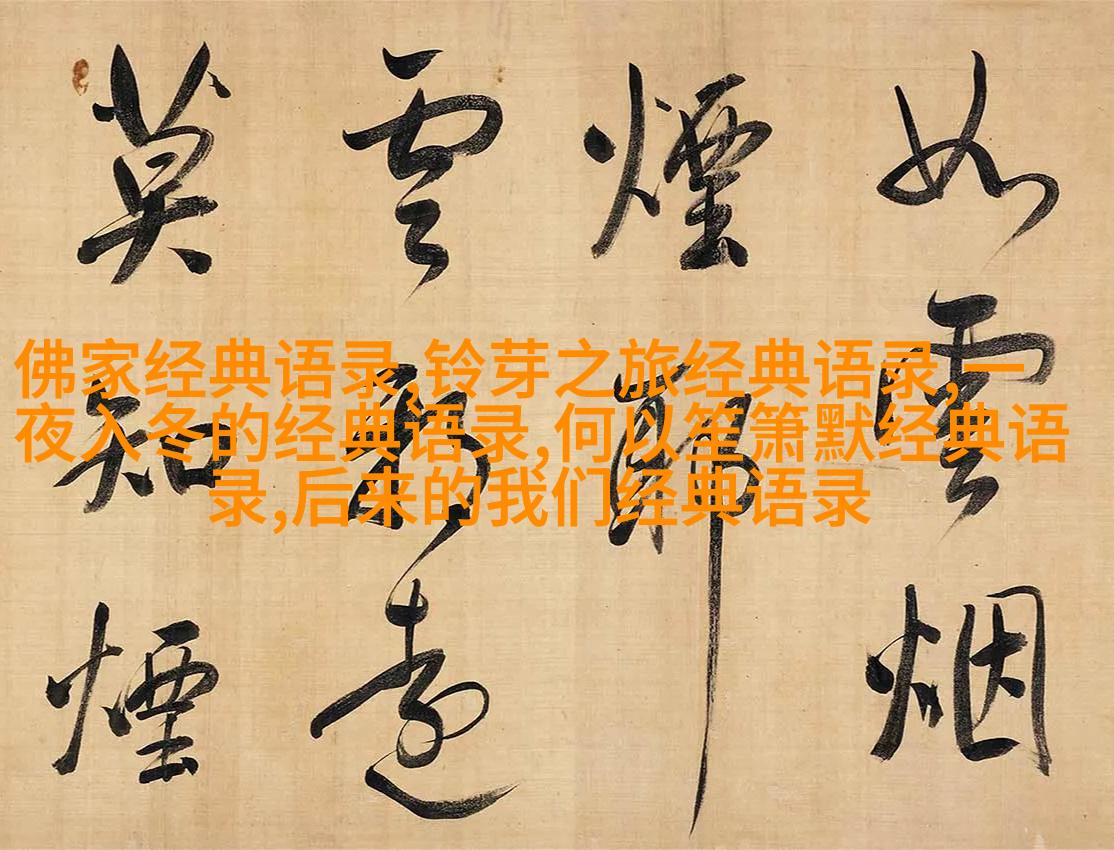 佛家经典语录,铃芽之旅经典语录,一
夜入冬的经典语录,何以笙箫默经典语
录,后来的我们经典语录
如雲烟
煙歸
雲遠
莫知煙